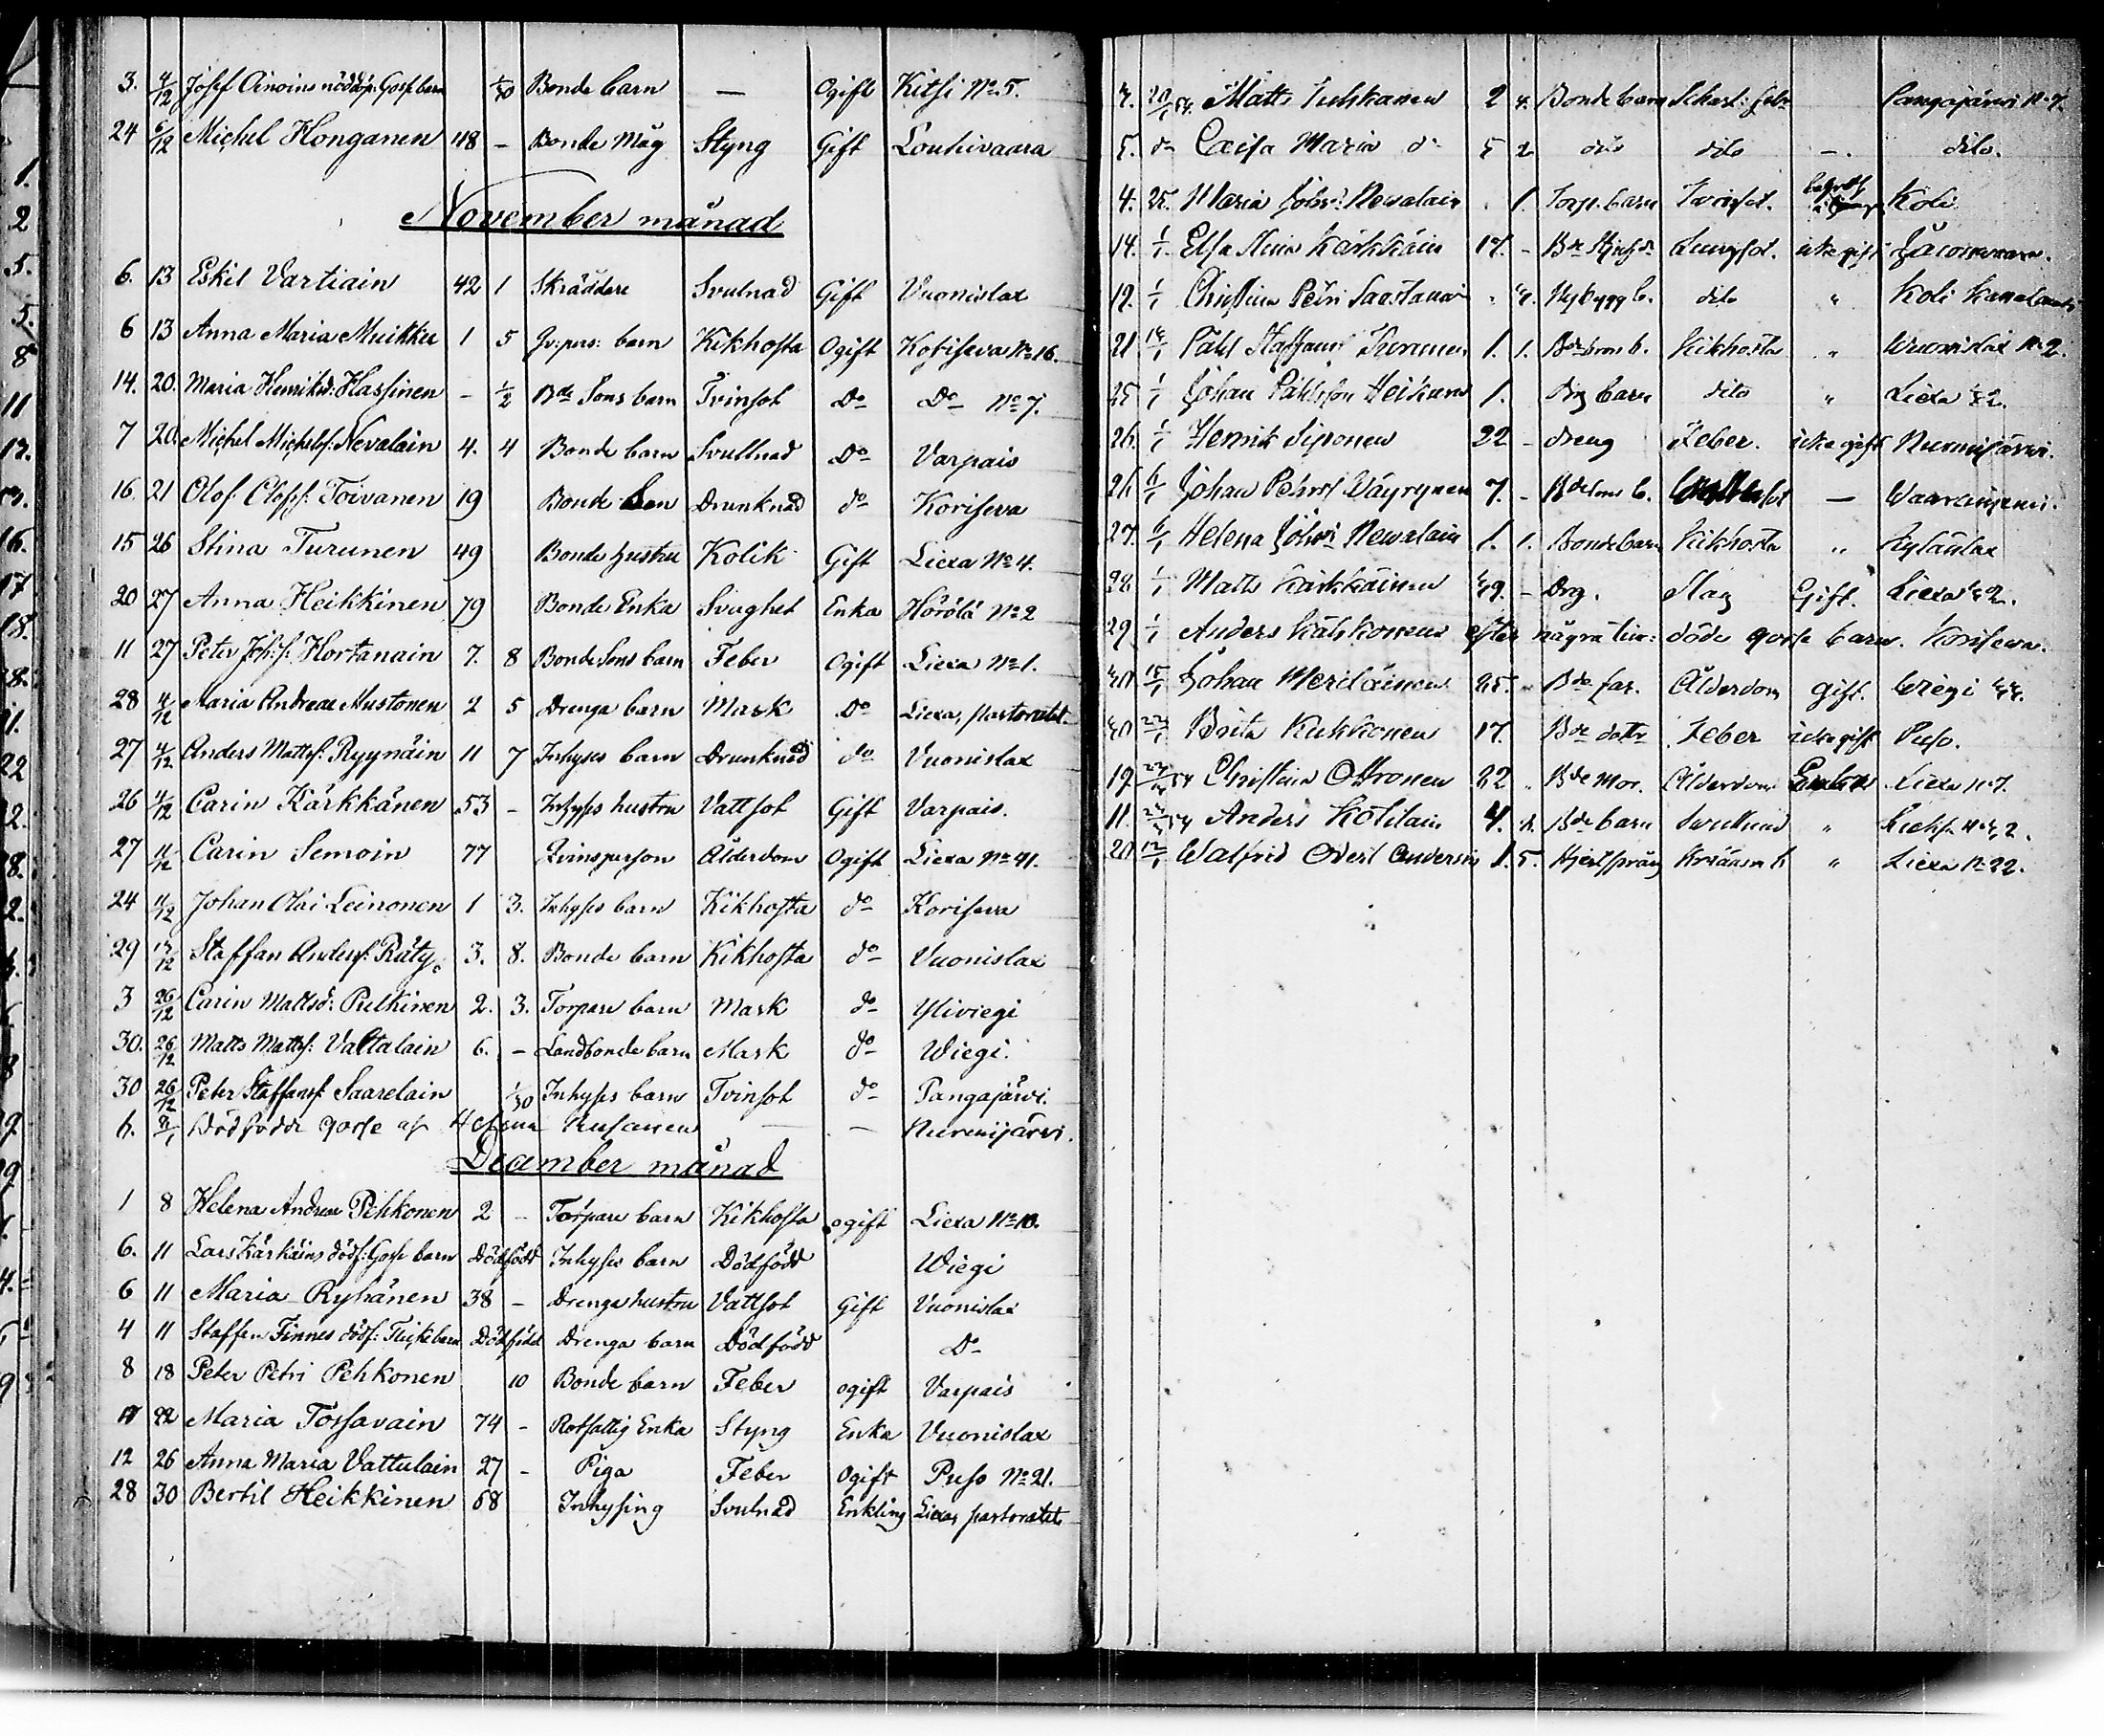 3. 4/12 Josef Ainoins nöddöp: Gosse barn 1/30 Bonde barn — Ogift Kitsi No 5.
24 6/12 Michel Honganen 48 - Bonde Måg Styng Gift Louhivaara
November månad
6. 13 Eskil Vartiain 42 1 Skräddere Svulnad Gift Vuonislax
6 13 Anna Maria Muikku 1 5 barn Kikhosta Ogift Koriseva No 16.
14. 20. Maria Henriksd: Hassinen - 1/2 Bde Sons barn Tvinsot Do Do No 7.
7 20. Michel Michelss: Nevalain 4. 4 Bonde barn Svullnad Do Varpais
16. 21 Olof Olofs: Toivanen 19 Bonde Son Drunknad do Koriseva
15 26 Stina Turunen 49 Bonde hustru Kolik Gift Liexa No 4.
20 27 Anna Heikkinen 79 Bonde Enka Svaghet Enka Hörölä No 2
11 27 Peter Johs: Hortanain 7. 8 Bonde Sons barn Feber Ogift Liexa No 1.
28 4/12 Maria Andreae Mustonen 2 5 Drenga barn Mask Do Liexa, pastoratet
27 4/12 Anders Mattss: Ryynäin 11 7 Inhyses barn Drunknad do Vuonislax
26 4/12 Carin Kärkkänen 53 - Inhyses hustru Vattsot Gift Varpais.
27 4/12 Carin Semoin 77 Qvinsperson Ålderdom Ogift Liexa No 41.
24 4/12 Johan Olai Leinonen 1 3. Inhyses barn Kikhosta do Koriseva
29 13/12 Staffan Anderss: Räty. 3. 8. Bonde barn Kikhosta do Vuonislax
3 26/12 Carin Mattsd: Pulkinen 2. 3. Torpare barn Mask do Yliviegi
30. 26/12 Matts Mattss: Vattalain 6. - Landbonde barn Mask do Wiegi.
30 26/12 Peter Staffanss: Saarelain 1/30 Inhyses barn Tvinsot do Pangajärvi.
6. 8/1 Dödfödde gosse af — — Nurmijärvi.
December månad
1 8 Helena Andreae Pehkonen 2 - Torpare barn Kikhosta ogift Liexa No 10.
6. 11 Lars Kärkäins dödf: Gosse barn Dödfödd Inhyses barn Dödfödd Wiegi
6 11 Maria Ryhänen 38 - Drenga hustru Vattsot Gift Vuonislax
4 11 Staffan Finnes dödf: Flicke barn Dödfödd Drenga barn Dödfödd Do
8 18 Peter Petri Pehkonen 10 Bonde barn Feber ogift Varpais
17 22 Maria Torsavain 74 - Rotfattig Enka Styng Enka Vuonislax
12 26 Anna Maria Vattulain 27 - Piga Feber Ogift Puso No 21.
28 30 Bertil Heikkinen 68 Inhysing Svulnad Enkling Liexa, pastoratet
Matts 2 4. Bonde barn Skarl: feb: Pangajärvi No 7.
5. do Caisa Maria do 5 2 dito dito —. dito.
4. 25. Maria Johs: Newalain . 1. Torp. barn Tvinsot. Koli
14. 1/1 Elsa Stina Kärkkäin 17. - Lungsot. icke gift
19. 1/1 Christina Petri Saastamoi " Nybygg b. dito " Koli
21 Påhl Staffans 1. 1. b. Kikhosta " Wuonislax No 2.
25 1/1 Johan Påhlsson Heikinen 1. Drg barn dito " Liexa
26. 1/1 Henrik Siponen 22 - dreng Feber. icke gift Nurmijärvi.
26 6/1 Johan Pehrss Wäyrynen 7. - b. —
27. 6/1 Helena Johs: Newalain 1. 1. Bonde barn Kikhosta " Kylänlax
28 1/1 Matts Kärkkäinen - Drg. Slag Gift. Liexa
29 1/1 Anders efter några tim: döde gosse barn. Koriseva.
Johan Meriläinen Bde far. Ålderdom gift. Wiegi
Brita Kukkonen 17. Bde dottr Feber icke gift Puso.
19. Christina Bde Mor. Ålderdom Liexa No 7.
11. Anders Kötilain 4. Bde barn Svullnad "
20 12/1 Walfrid 1. 5. " Liexa No 22.